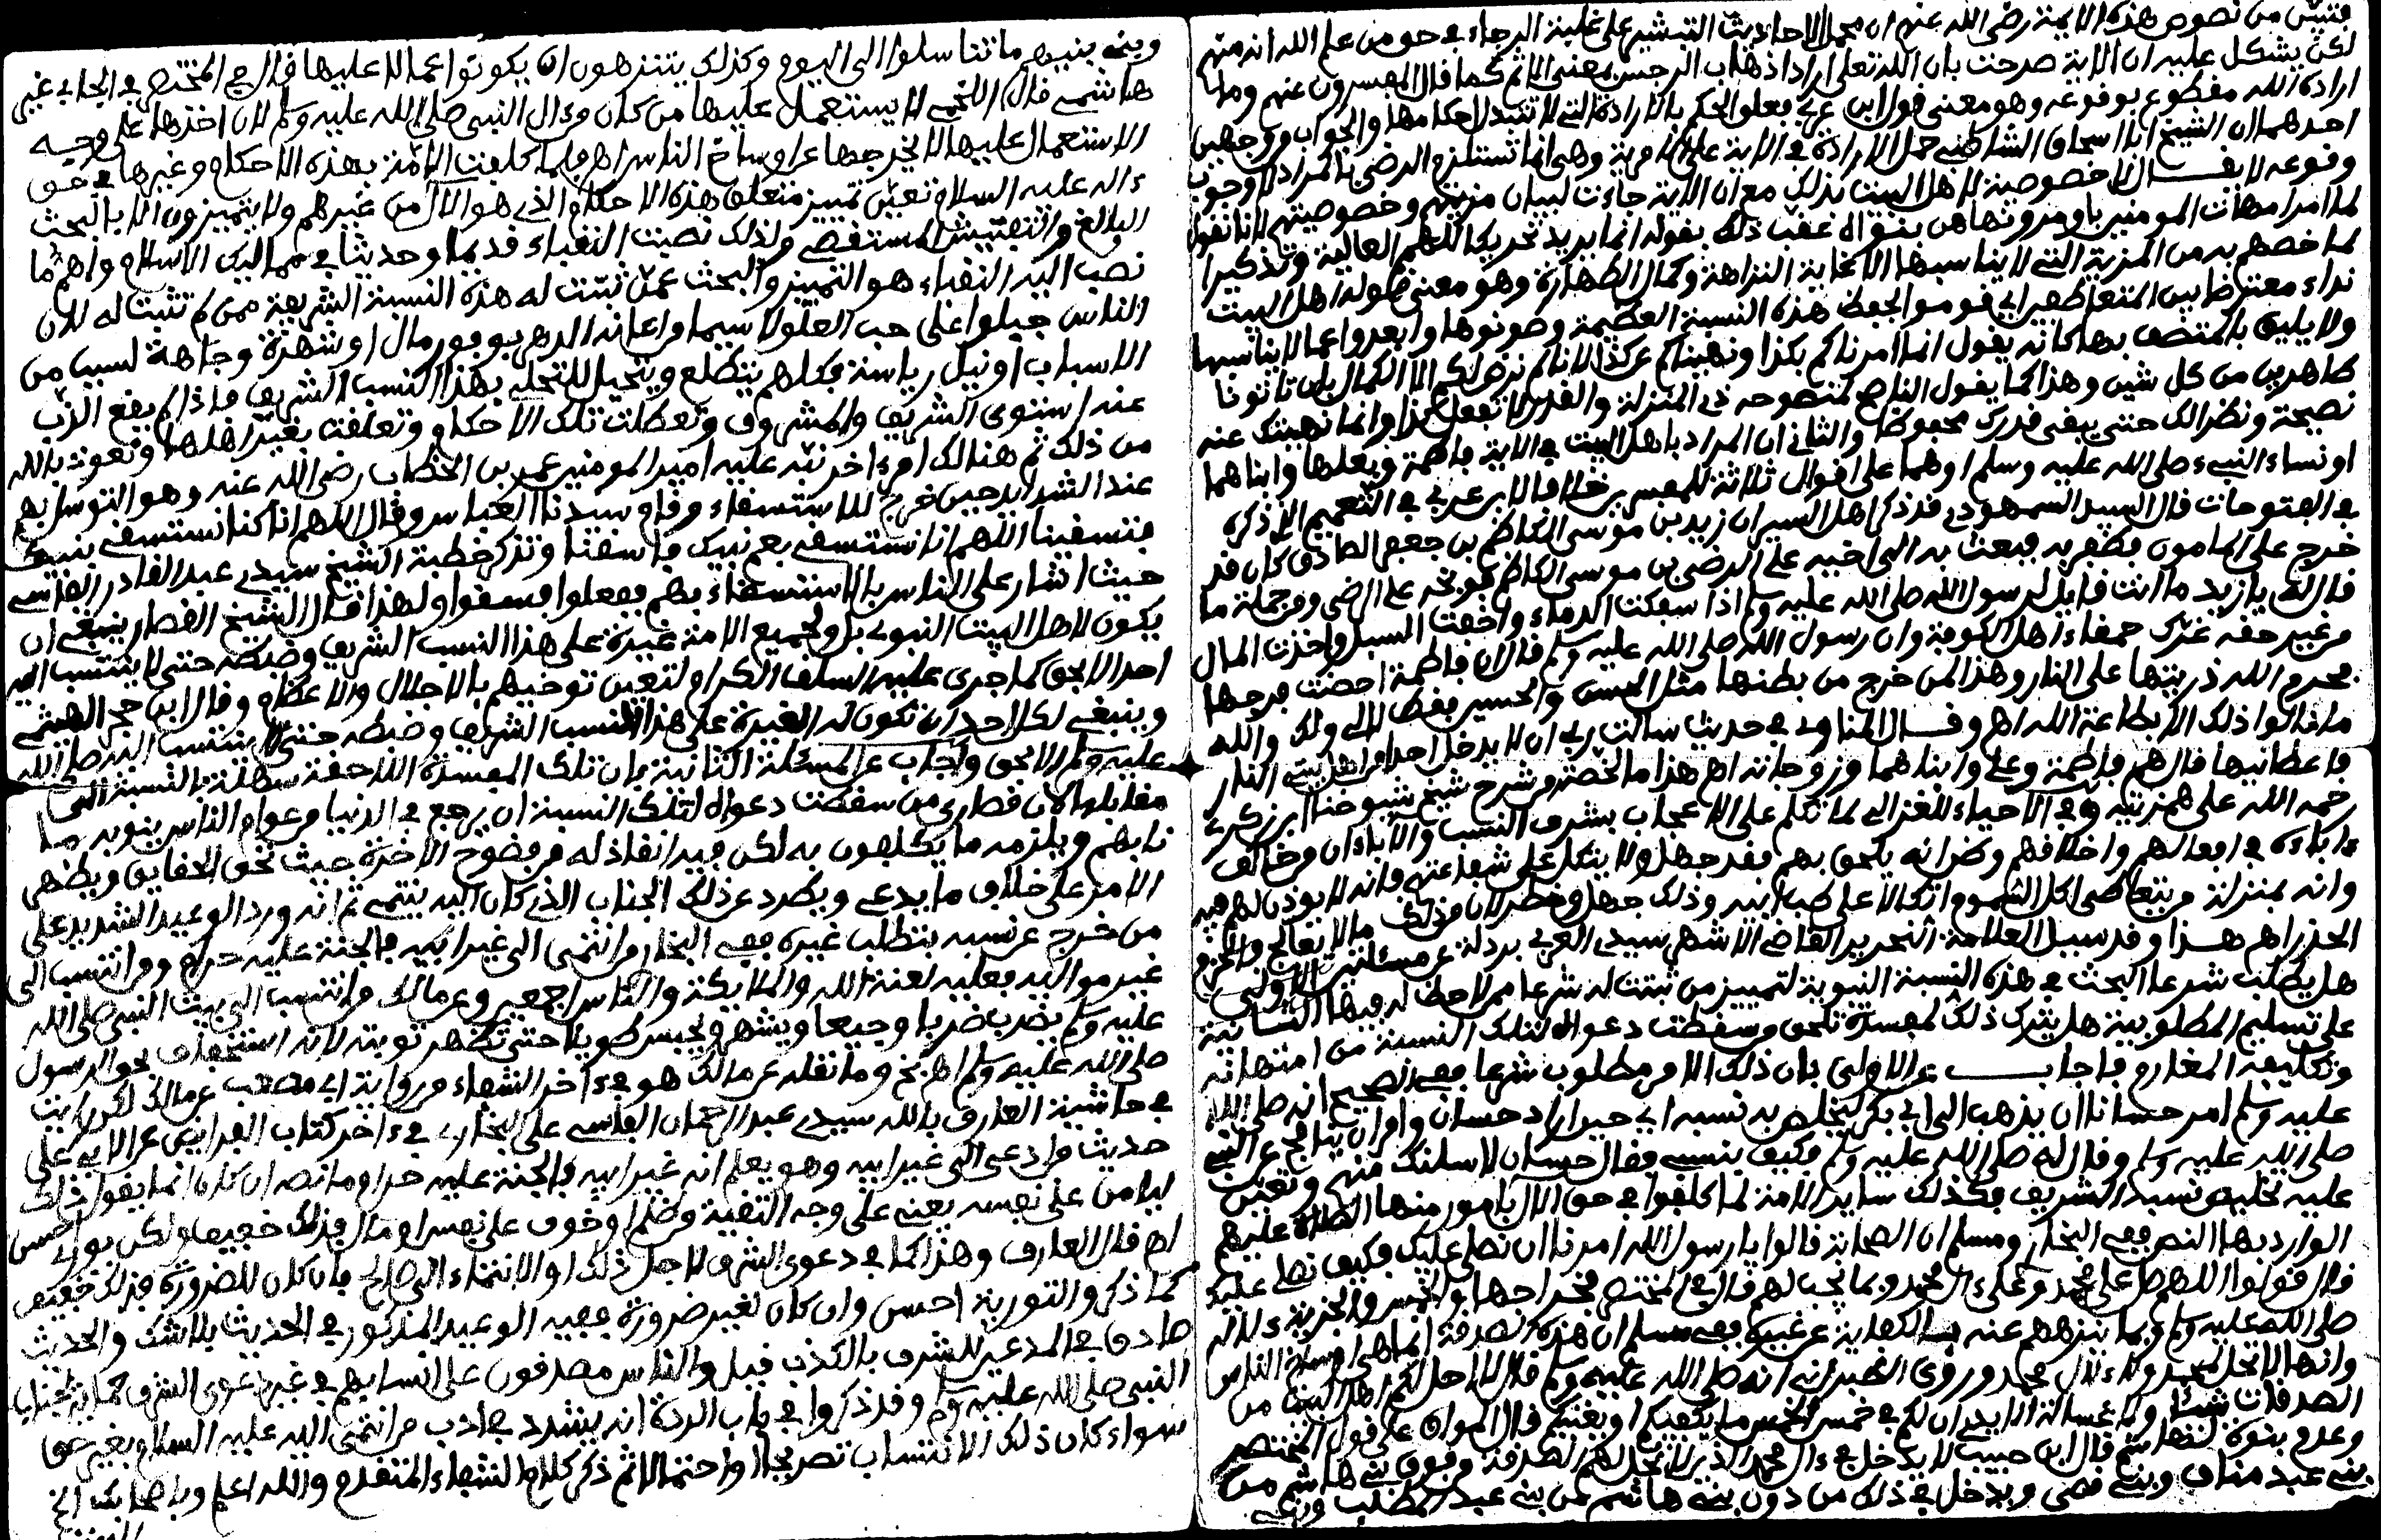 فتبين من نصوص هذه الأيمة رضي الله عنهم ان محمل الاحاديث التبشير على غلبة الرجاء في حق من علم الله انه منهم
لكن يشكل عليه ان الاية صرحت بان الله تعلى اراد اذهاب الرجس بمعنى الاثم كما قال المفسرون عنهم وما
ارادة الله مقطوع بوقوعه وهو معنى قول ابن عربي فعلق الحكم بالارادة التي لا تتبدل احكامها والجواب من وجهين
احدهما ان الشيخ ابا اسحاق الشاطبي حمل الارادة في الاية على الامرية وهي انما تستلزم الرضى بالمراد لا وجوب
وقوعه لا يقال لا خصوصية لاهل البيت بذلك مع ان الاية جاءت لبيان مزيتهم وخصوصيتهم لانا نقول
لما امر امهات المومنين باوامر ونهاهن بنواه عقب ذلك بقوله انما يريد تحريكا للهمم العالية وتذكيرا
لما خصهم به من المزية التي لا يناسبها الا غاية النزاهة وكمال الطهارة وهو معنى قوله اهل البيت
نداء معترضا بين المتعاطفين اي قوموا لحفظ هذه النسبة العظيمة وصونوها وابعدوا عما لا يناسبها
ولا يليق بالمتصف بها كانه يقول انما امرناكم بكذا ونهيناكم عن كذا لانا لم نرض لكم الا الكمال بان تاتونا
طاهرين من كل شين وهذا كما يقول الناصح لمنصوحه ذي المنزلة والقدر لا تفعل كذا وانما نهيتك عنه
نصيحة ونظرا لك حتى يبقى قدرك محفوظا والثاني ان المراد باهل البيت في الاية فاطمة وبعلها وابناهما
او نساء النبيء صلى الله عليه وسلم او هما على اقوال ثلاثة للمفسرين خلافا لابن عربي في التعميم الذي ذكره
في الفتوحات قال السيد السمهودي قد ذكر اهل السير ان زيد بن موسى الكاظم بن جعفر الصادق كان قد
خرج على المامون فظفر به فبعث به الى اخيه علي الرضى بن موسى الكاظم فوبخه علي الرضى ومن جملة ما
قال له يا زيد ما انت قايل لرسول الله صلى الله عليه وسلم اذا سفكت الدماء واخفت السبل واخذت المال
من غير حقه غرك حمقاء اهل الكوفة وان رسول الله صلى الله عليه وسلم قال ان فاطمة احصنت فرجها
فحرم الله ذريتها على النار وهذا لمن خرج من بطنها مثل الحسن والحسين فقط لا لي ولك والله
ما نالوا ذلك الا بطاعة الله اهـ وقال المناوي في حديث سالت ربي ان لا يدخل احدا من اهل بيتي النار
فاعطانيها قال هم فاطمة وعلي وابناهما وزوجاته اهـ هذا ملخصا من شرح شيخ شيوخنا ابن زكري
رحمه الله على همزيته وفي الاحياء للغزالي لما تكلم على الاعجاب بشرف النسب والاباء ان من خالف
ءاباءه في افعالهم واخلاقهم وظن انه يلحق بهم فقد جهل ولا يتكل على شفاعتهم فانه لا يوذن لهم فيه
وانه بمنزلة من يتعاطى اكل السموم اتكالا على طب ابيه وذلك جهل وخطر لان من ذلك ما لا يعالج والحزم
الحذر اهـ هذا وقد سيل العلامة النحرير القاضي الاشهر سيدي العربي بردلة عن مسئلتين الاولى
هل يطلب شرعا البحث في هذه النسبة النبوية لتمييز من ثبتت له شرعا ممن لاحظ له فيها الثانية
على تسليم المطلوبية هل يترك ذلك لمفسدة تلحق من سقطت دعواه لتلك النسبة من امتهانه
وتكليفه المغارم فاجاب عن الاولى بان ذلك الامر مطلوب شرعا ففي الصحيح انه صلى الله
عليه وسلم امر حسانا ان يذهب الى ابي بكر ليخلص به نسبه اي حين اراد حسان وامران ينافح عن النبي
صلى الله عليه وسلم وقال له صلى الله عليه وسلم فكيف بنسبي فقال حسان لاسلنك منهم وتعين
عليه تخليص نسبه الشريف فكذلك ساير الامة لما كلفوا في حق الال بامور منها الصلاة عليهم
الوارد بها النص ففي البخاري ومسلم ان الصحابة قالوا يا رسول الله امرنا ان نصلي عليك فكيف نصلي عليك
قال قولوا اللهم صل على محمد وعلى ءال محمد وبما يجب لهم قال في المختصر فخراجها والخمس والجزية لاله
صلى الله عليه وسلم وبما تنزههم عنه بالكفاية عن غيره ففي مسلم ان هذه الصدقة انما هي اوساخ الناس
وانها لا تحل لمحمد ولا لال محمد وروى الطبراني انه صلى الله عليه وسلم قال لا احل لكم اهل البيت من
الصدقات شيئا ولا غسالة الايدي ان لكم في خمس الخمس ما يكفيكم او يغنيكم قال المواق على قول المختصر
وعدم بنوة لهاشم قال ابن حبيب لا يدخل في ءال محمد الذين لا تحل لهم الصدقة من فوق بني هاشم من
بني عبد مناف وبني قصي ويدخل في ذلك من دون بني هاشم من بني عبد المطلب
وبنيه بنيهم ما تناسلوا الى اليوم وكذلك يتنزهون ان يكونوا عمالا عليها قال في المختصر في الجابي غير
هاشمي قال اللخمي لا يستعمل عليها من كان من ءال النبي صلى الله عليه وسلم لان اخذها على وجه
الاستعمال عليها لا يخرجها عن اوساخ الناس اهـ فلما كلفت الامة بهذه الاحكام وغيرها في حق
ءاله عليه السلام تعين تمييز متعلق هذه الاحكام الذي هو الال من غيرهم ولا يتميزون الا بالبحث
البالغ والتفتيش المستقصي ولذلك نصبت النقباء قديما وحديثا في ممالك الاسلام واهم ما
نصب اليه النقباء هو التمييز والبحث عمن ثبتت له هذه النسبة الشريفة ممن لم تثبت له لان
الناس جبلوا على حب العلو لا سيما من اعانه الدهر بوفور مال او شهرة وجاهة لسبب من
الاسباب او نيل رياسة فكلهم يتطلع ويتحيل للتحلي بهذا النسب الشريف فاذا لم يقع الذب
عنه استوى الشريف والمشروف وتعطلت تلك الاحكام وتعلقت بغير اهلها ونعوذ بالله
من ذلك ثم هنالك امر ءاخر نبه عليه امير المومنين عمر بن الخطاب رضي الله عنه وهو التوسل بهم
عند الشدايد حين خرج للاستسقاء وقدم سيدنا العباس وقال اللهم انا كنا نستسقي بنبيك
فتسقينا اللهم انا نستسقي بعم نبيك فاسقنا وتذكر خطبة الشيخ سيدي عبد القادر الفاسي
حيث اشار على الناس بالاستسقاء بهم ففعلوا فسقوا ولهذا قال الشيخ القصار ينبغي ان
يكون لاهل البيت النبوي بل ولجميع الامة غيرة على هذا النسب الشريف وضبطه حتى لا ينتسب اليه
احد الا بحق كما جرى عليه السلف الكرام ولتعين توخيهم بالاجلال والاعظام وقال ابن حجر الهيتمي
وينبغي لكل احد ان تكون له الغيرة على هذا النسب الشريف وضبطه حتى لا ينتسب اليه صلى الله
عليه وسلم الا بحق واجاب عن المسئلة الثانية بان تلك المفسدة اللاحقة سهلة بالنسبة الى
مقابلها لان قصارى من سقطت دعواه لتلك النسبة ان يرجع في الدنيا من عوام الناس ينوبه ما
نابهم ويلزمه ما يكلفون به لكن فيه انقاذ له من فضوح الاخرة حيث تحق الحقايق ويظهر
الامر على خلاف ما يدعي ويطرد عن ذلك الجناب الذي كان اليه ينتمي ثم انه ورد الوعيد الشديد على
من خرج عن نسبه بتطلب غيره ففي البخاري من انتمى الى غير ابيه فالجنة عليه حرام ومن انتسب الى
غير مواليه فعليه لعنة الله والملايكة والناس اجمعين وعن مالك من انتسب الى بيت النبي صلى الله
عليه وسلم يضرب ضربا وجيعا ويشهر ويحبس طويلا حتى تظهر توبته لانه استخفاف بحق الرسول
صلى الله عليه وسلم اهـ بخ وما نقله عن مالك هو في ءاخر الشفاء من رواية ابي مصعب عن مالك لكن رايت
في حاشية العارف بالله سيدي عبد الرحمان الفاسي على البخاري في ءاخر كتاب الفرايض عن الابي على
حديث من ادعى الى غير ابيه وهو يعلم انه غير ابيه فالجنة عليه حرام ما نصه ان كان انما يفعل ذلك
ليامن على نفسه يعني على وجه التقية وظلم او خوف على نفس او مال فذلك خفيف ولكن يوري احسن
اهـ قال العارف وهذا كما في دعوى الشرف لاجل ذلك او الانتماء الى صالح فان كان للضرورة فذلك خفيف
كما ذكر والتورية احسن وان كان لغير ضرورة ففيه الوعيد المذكور في الحديث بلا شك والحديث
صادق في المدعين للشرف بالكذب قيل والناس مصدقون على انسابهم في غير دعوى الشرف
النبي صلى الله عليه وسلم وقد ذكروا في باب الردة انه يشدد في ادب من انتمى اليه عليه السلام بغير حق
سواء كان ذلك الانتساب تصريحا او احتمالا ثم ذكر كلام الشفاء المتقدم والله اعلم